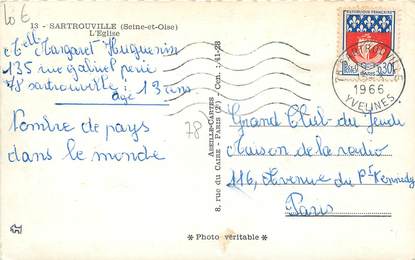 106
13 - SARTROUVILLE (Seine-et-Oise)
L'Eglise
Melle Margaret Huguenin
135 rue gabriel perie
78 Sartrouville
age : 13 ans
Nombre de pays
dans le monde
78
ABEILLE-CARTES
8, rue du CAIRE - PARIS (2e) - Cen. : 41-28
REPUBLIQUE FRANÇAISE
0,30
PARIS
SARTROUVILLE
1966
YVELINES
Grand Club du Jeudi
Maison de la radio
116, Avenue du Pt Kennedy
Paris
* Photo véritable *